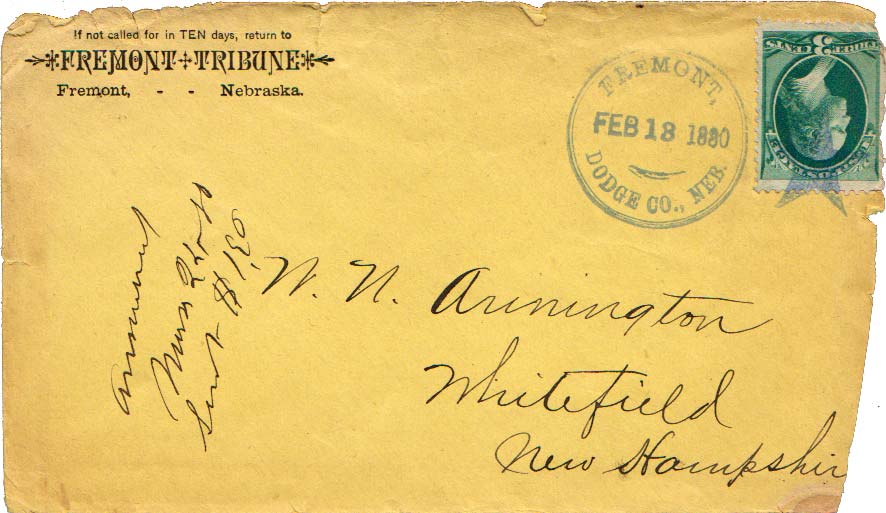 If not called for in TEN days, return to
FREMONT TRIBUNE
Fremont, - - Nebraska.
FREMONT,
FEB 18 1880
DODGE CO., NEB.
3
W. N. Arinington
Whitefield
New Hampshir
Sent $1.50